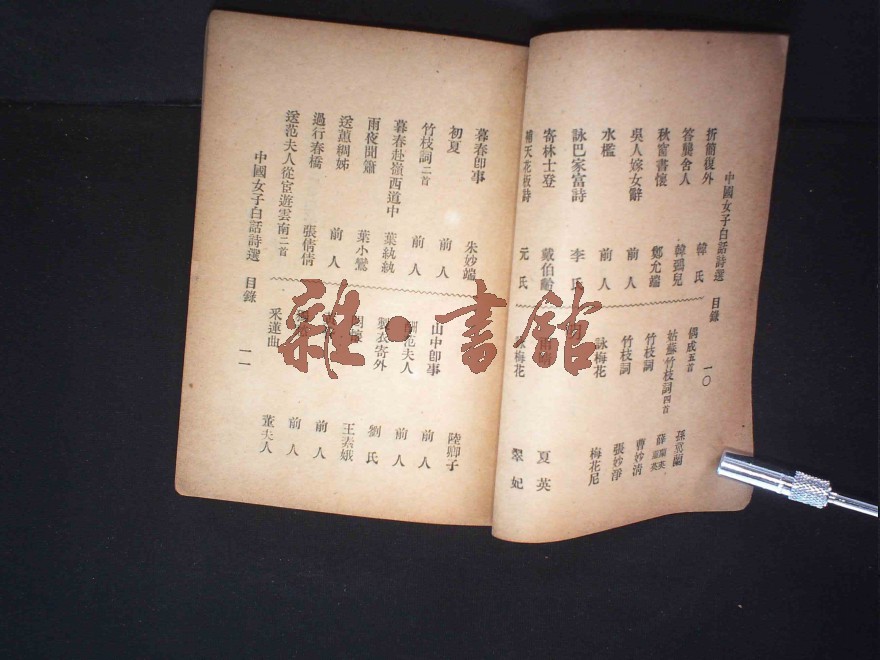 中國女子白話詩選　目錄　一〇
折簡復外　韓氏
答龔舍人　韓彌兒
秋窗書懷　鄭允端
吳人嫁女辭　前人
水檻　前人
詠巴家富詩　李氏
寄林士登　戴伯齡
補天花板詩　元氏
偶成五首　孫蕙蘭
姑蘇竹枝詞四首　薛蘭英
竹枝詞　曹妙清
竹枝詞　張妙淨
詠梅花　梅花尼
夏英
梅花　翠妃
暮春即事　朱妙端
初夏　前人
竹枝詞二首　前人
暮春赴嶺西道中　葉紈紈
雨夜聞簫　葉小鸞
送蕙綢姊　前人
過行春橋　張倩倩
送范夫人從宦遊雲南二首
山中即事　陸卿子
范夫人　前人
製衣寄外　劉氏
王素娥
前人
前人
采蓮曲　董夫人
中國女子白話詩選　目錄　一一
雜·書館